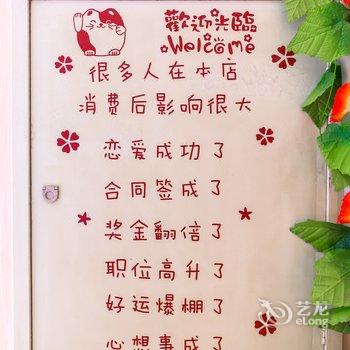 歡迎光臨
Welcome
很多人在本店
消费后影响很大
恋爱成功了
合同签成了
奖金翻倍了
职位高升了
好运爆棚了
心想事成了
艺龙
eLong.com